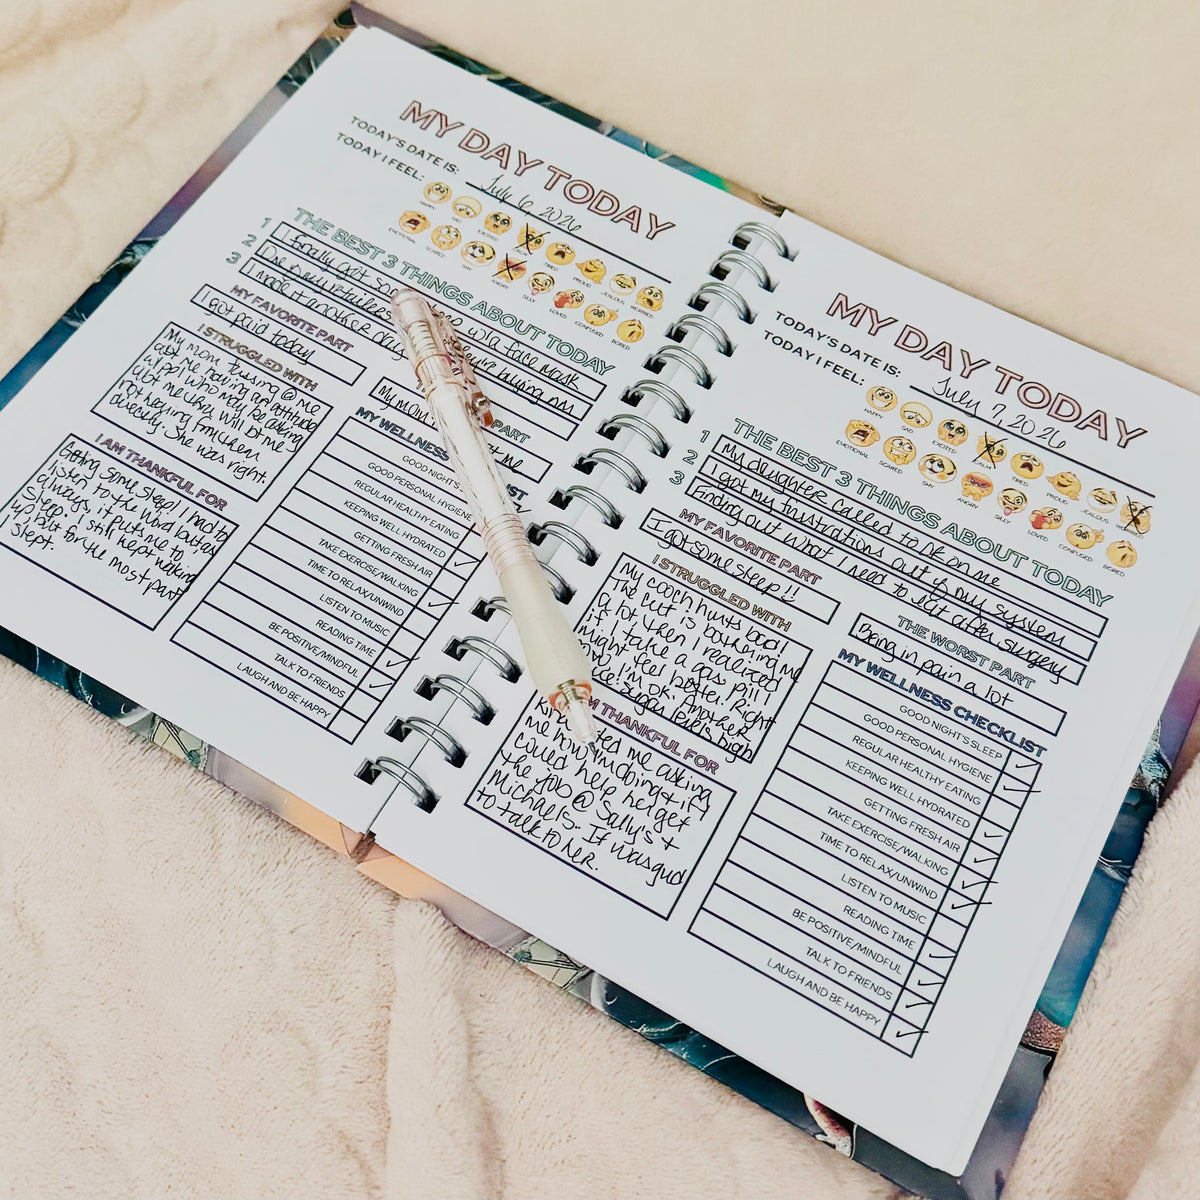 MY DAY TODAY
TODAY'S DATE IS: July 6, 2026
TODAY I FEEL:
HAPPY SAD EXCITED CALM TIRED PROUD JEALOUS WORRIED
EMOTIONAL SCARED SHY ANGRY SILLY LOVED CONFUSED BORED
THE BEST 3 THINGS ABOUT TODAY
1 I finally got so w/ a face mask
2 One of my retailers they're buying my
3 I made it another day
MY FAVORITE PART
I got paid today
I STRUGGLED WITH
My mom fussing @ me
abt me having an attitude
w/ ppl who may be asking
abt me they will b/t me
not hearing from them
directly. She was right.
I AM THANKFUL FOR
Getting some sleep! I had to
listen to the wind but as
always, it puts me to
sleep. I still kept waking
up but for the most part
I slept.
PART
My mom at me
MY WELLNESS LIST
GOOD NIGHT'S
GOOD PERSONAL HYGIENE
REGULAR HEALTHY EATING
KEEPING WELL HYDRATED
GETTING FRESH AIR
TAKE EXERCISE/WALKING
TIME TO RELAX/UNWIND
LISTEN TO MUSIC
READING TIME
BE POSITIVE/MINDFUL
TALK TO FRIENDS
LAUGH AND BE HAPPY
MY DAY TODAY
TODAY'S DATE IS: July 7, 2026
TODAY I FEEL:
HAPPY SAD EXCITED CALM TIRED PROUD JEALOUS
EMOTIONAL SCARED SHY ANGRY SILLY LOVED CONFUSED BORED
THE BEST 3 THINGS ABOUT TODAY
1 My daughter called to ck on me
2 I got my frustrations out of my system
3 Finding out what I need to eat after surgery
MY FAVORITE PART
I got some sleep!!
I STRUGGLED WITH
My cooch hurts bad!
The cut is bothering me
a lot, then I realized
if I take a gas pill I
might feel better. Right
now I'm ok. Another
sugar levels high
I AM THANKFUL FOR
Kira ted me asking
me how I'm doing & if I
could help her get
the job @ Sally's &
Michaels. It was good
to talk to her.
THE WORST PART
Being in pain a lot
MY WELLNESS CHECKLIST
GOOD NIGHT'S SLEEP
GOOD PERSONAL HYGIENE
REGULAR HEALTHY EATING
KEEPING WELL HYDRATED
GETTING FRESH AIR
TAKE EXERCISE/WALKING
TIME TO RELAX/UNWIND
LISTEN TO MUSIC
READING TIME
BE POSITIVE/MINDFUL
TALK TO FRIENDS
LAUGH AND BE HAPPY